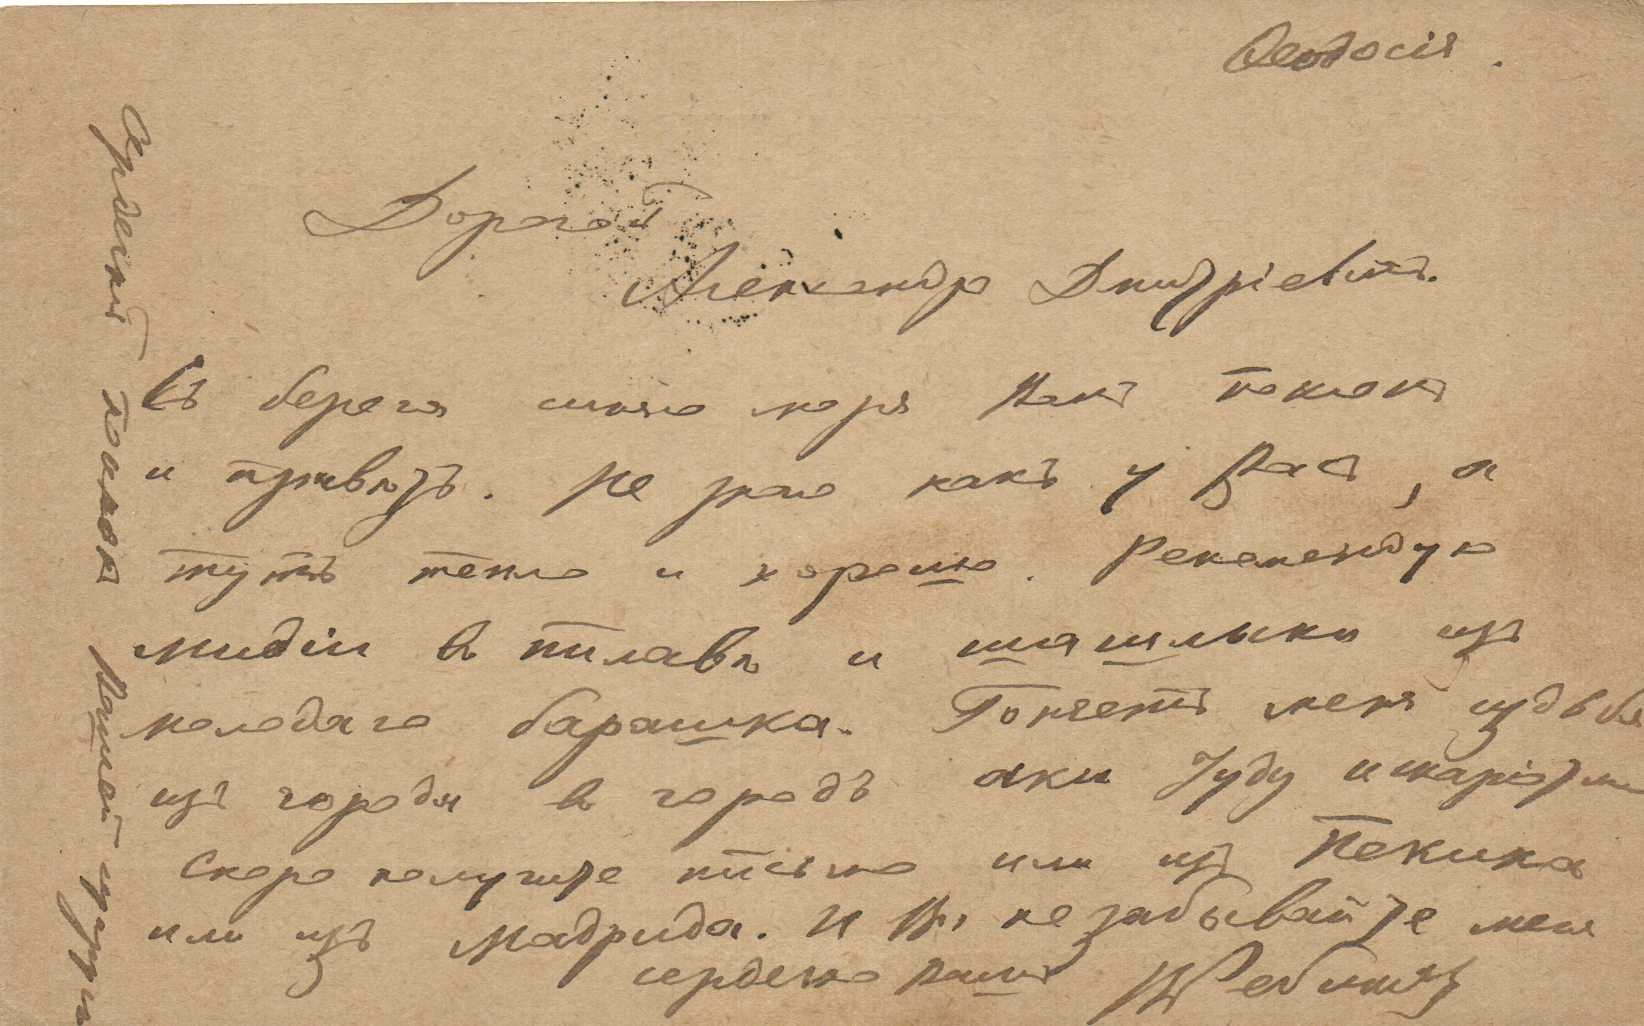 Ѳеодосія.
Дорогой
Александръ Дмитріевичъ.
Съ берега синяго моря Вамъ поклонъ
и привѣтъ. Не знаю какъ у Васъ, а
тутъ тепло и хорошо. Рекомендую
мидіи въ пилавѣ и шашлыки изъ
молодаго барашка. Гоняетъ меня судьба
изъ города въ городъ аки Іуду искаріота
Скоро получите письмо или изъ Пекина
или изъ Мадрида. И Вы не забывайте меня
сердечно Вашъ
Сердечный поклонъ Вашей